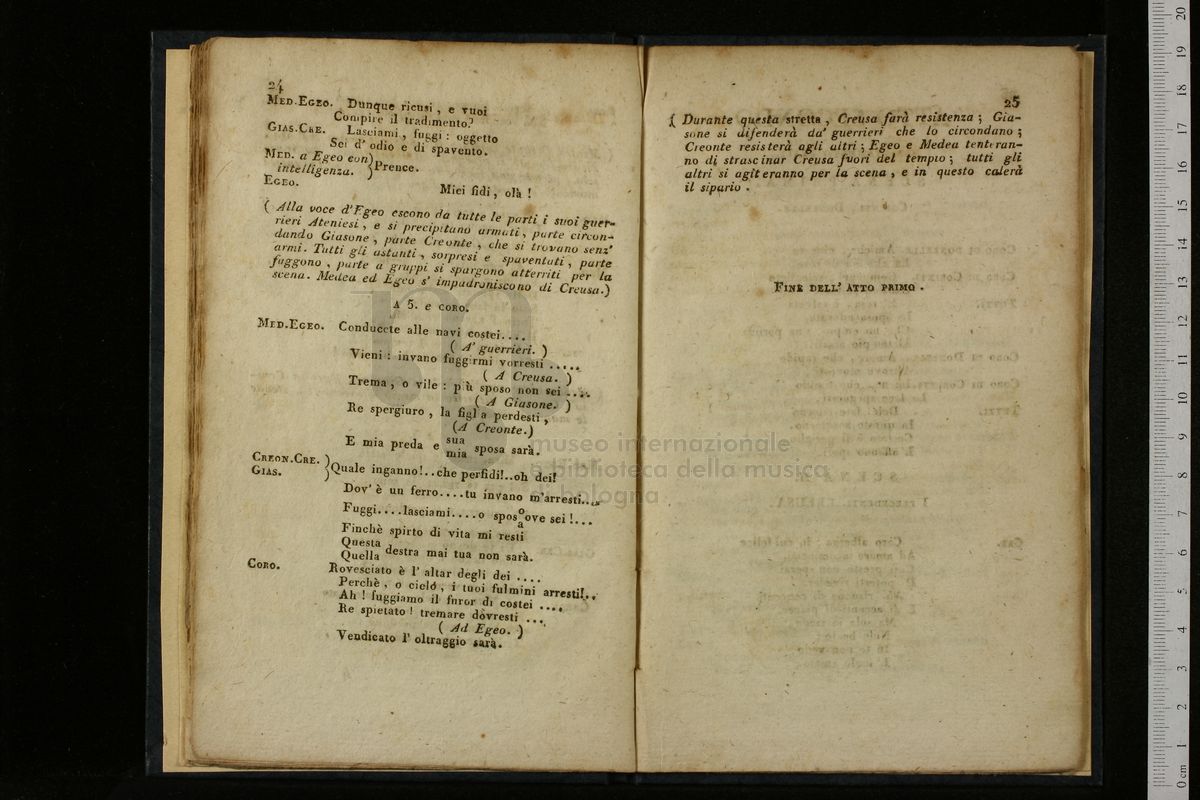 24
MED.EGEO. Dunque ricusi, e vuoi
Compire il tradimento?
GIAS.CRE. Lasciami, fuggi: oggetto
Sei d'odio e di spavento.
MED. a Egeo con
intelligenza. } Prence.
EGEO. Miei fidi, olà!
( Alla voce d'Egeo escono da tutte le parti i suoi guer-
rieri Ateniesi, e si precipitano armati, parte circon-
dando Giasone, parte Creonte, che si trovano senz'
armi. Tutti gli astanti, sorpresi e spaventati, parte
fuggono, parte a gruppi si spargono atterriti per la
scena. Medea ed Egeo s'impadroniscono di Creusa.)
A 5. e CORO.
MED.EGEO. Conducete alle navi costei....
( A' guerrieri. )
Vieni: invano fuggirmi vorresti .....
( A Creusa. )
Trema, o vile: più sposo non sei ....
( A Giasone. )
Re spergiuro, la figlia perdesti,
(A Creonte.)
E mia preda e sua
mia sposa sarà.
CREON.CRE.
GIAS. } Quale inganno!..che perfidi!..oh dei!
Dov'è un ferro....tu invano m'arresti....
Fuggi....lasciami....o sposo
a ove sei!...
Finchè spirto di vita mi resti
Questa
Quella destra mai tua non sarà.
CORO. Rovesciato è l'altar degli dei ....
Perchè, o cielo, i tuoi fulmini arresti!..
Ah! fuggiamo il furor di costei ....
Re spietato! tremare dovresti ...
( Ad Egeo. )
Vendicato l'oltraggio sarà.
25
( Durante questa stretta, Creusa farà resistenza; Gia-
sone si difenderà da' guerrieri che lo circondano;
Creonte resisterà agli altri; Egeo e Medea tenteran-
no di strascinar Creusa fuori del tempio; tutti gli
altri si agiteranno per la scena, e in questo calerà
il sipario.
FINE DELL'ATTO PRIMO.
museo internazionale
e biblioteca della musica
di bologna
0 cm 1 2 3 4 5 6 7 8 9 10 11 12 13 14 15 16 17 18 19 20